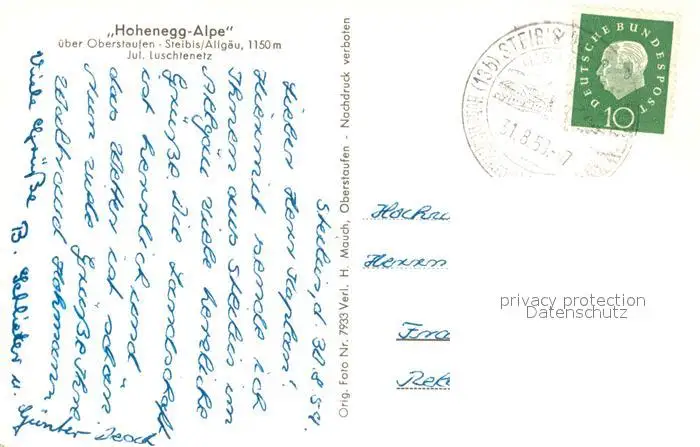 „Hohenegg-Alpe“
über Oberstaufen - Steibis/Allgäu, 1150 m
Jul. Luschtenetz
Steibis, d. 30.8.59.
Lieber Herr Kaplan!
Hiermit sende ich
Ihnen aus Steibis im
Allgäu viele herzliche
Grüße. Die Landschaft
ist herrlich und
das Wetter ist schön
Nun viele Grüße Ihre
Waltraud Hohmann
Viele Grüße B. Schlieter u.
Günter
Orig. Foto Nr. 7933 Verl. H. Mauch, Oberstaufen - Nachdruck verboten
(13b) STEIBIS
31.8.59.-7
DEUTSCHE BUNDESPOST
10
Hochw
Herrn
Fra
Reke
privacy protection
Datenschutz